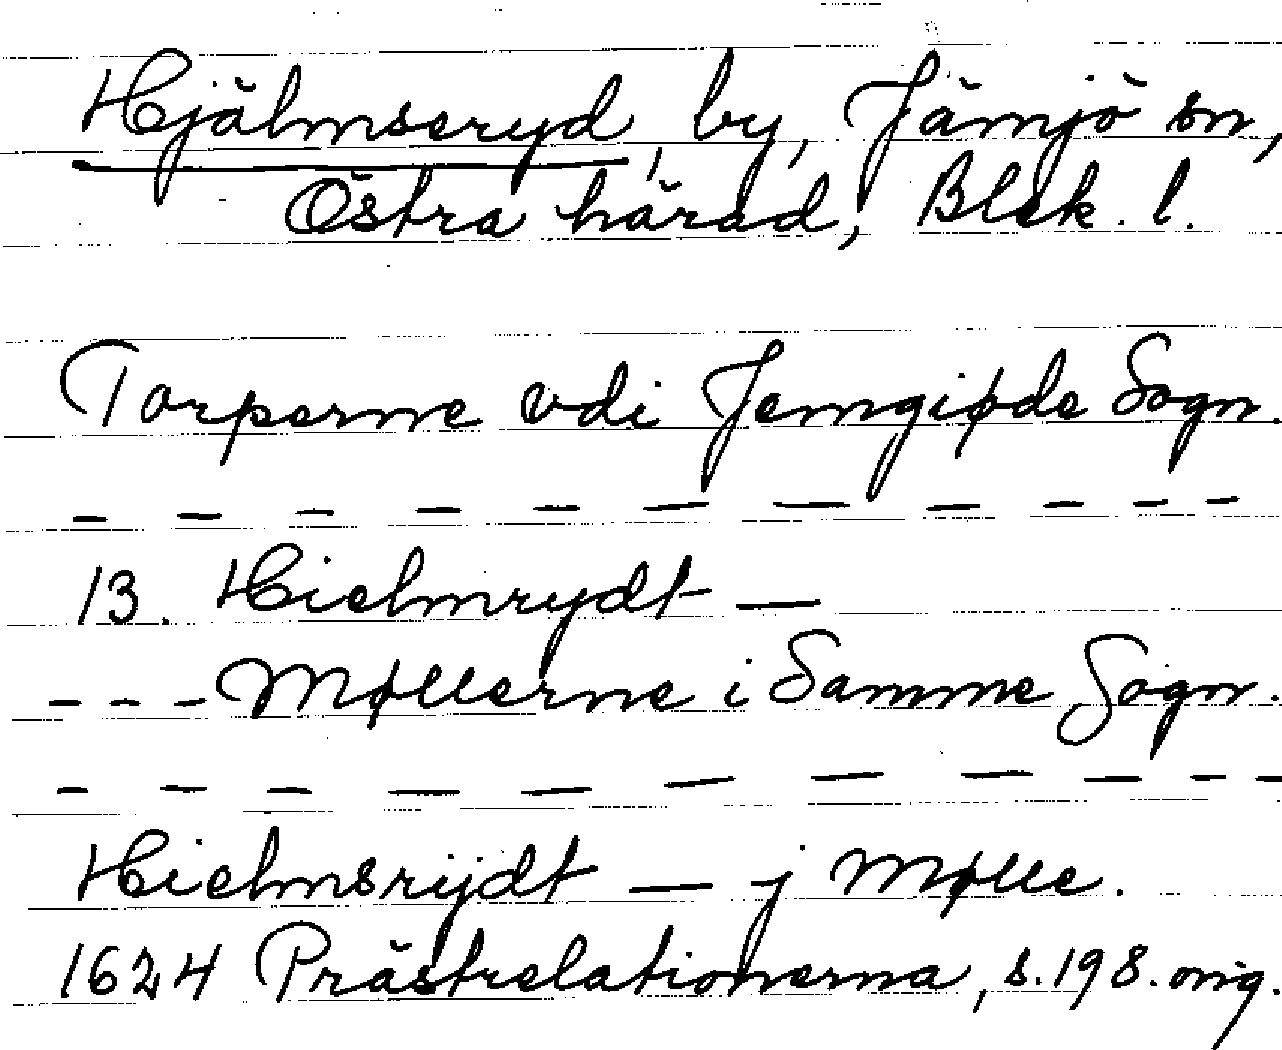 Hjälmseryd, by, Jämjö sn,
Östra härad, Blek. l.
Torperne vdi Jemgiøde Sogn.
— — — — — — — — — — —
13. Hielmrydt —
- - - Møllerne i Samme Sogn.
— — — — — — — — — — —
Hielmsrijdt — j Mølle.
1624 Prästrelationerna, s. 198. orig.